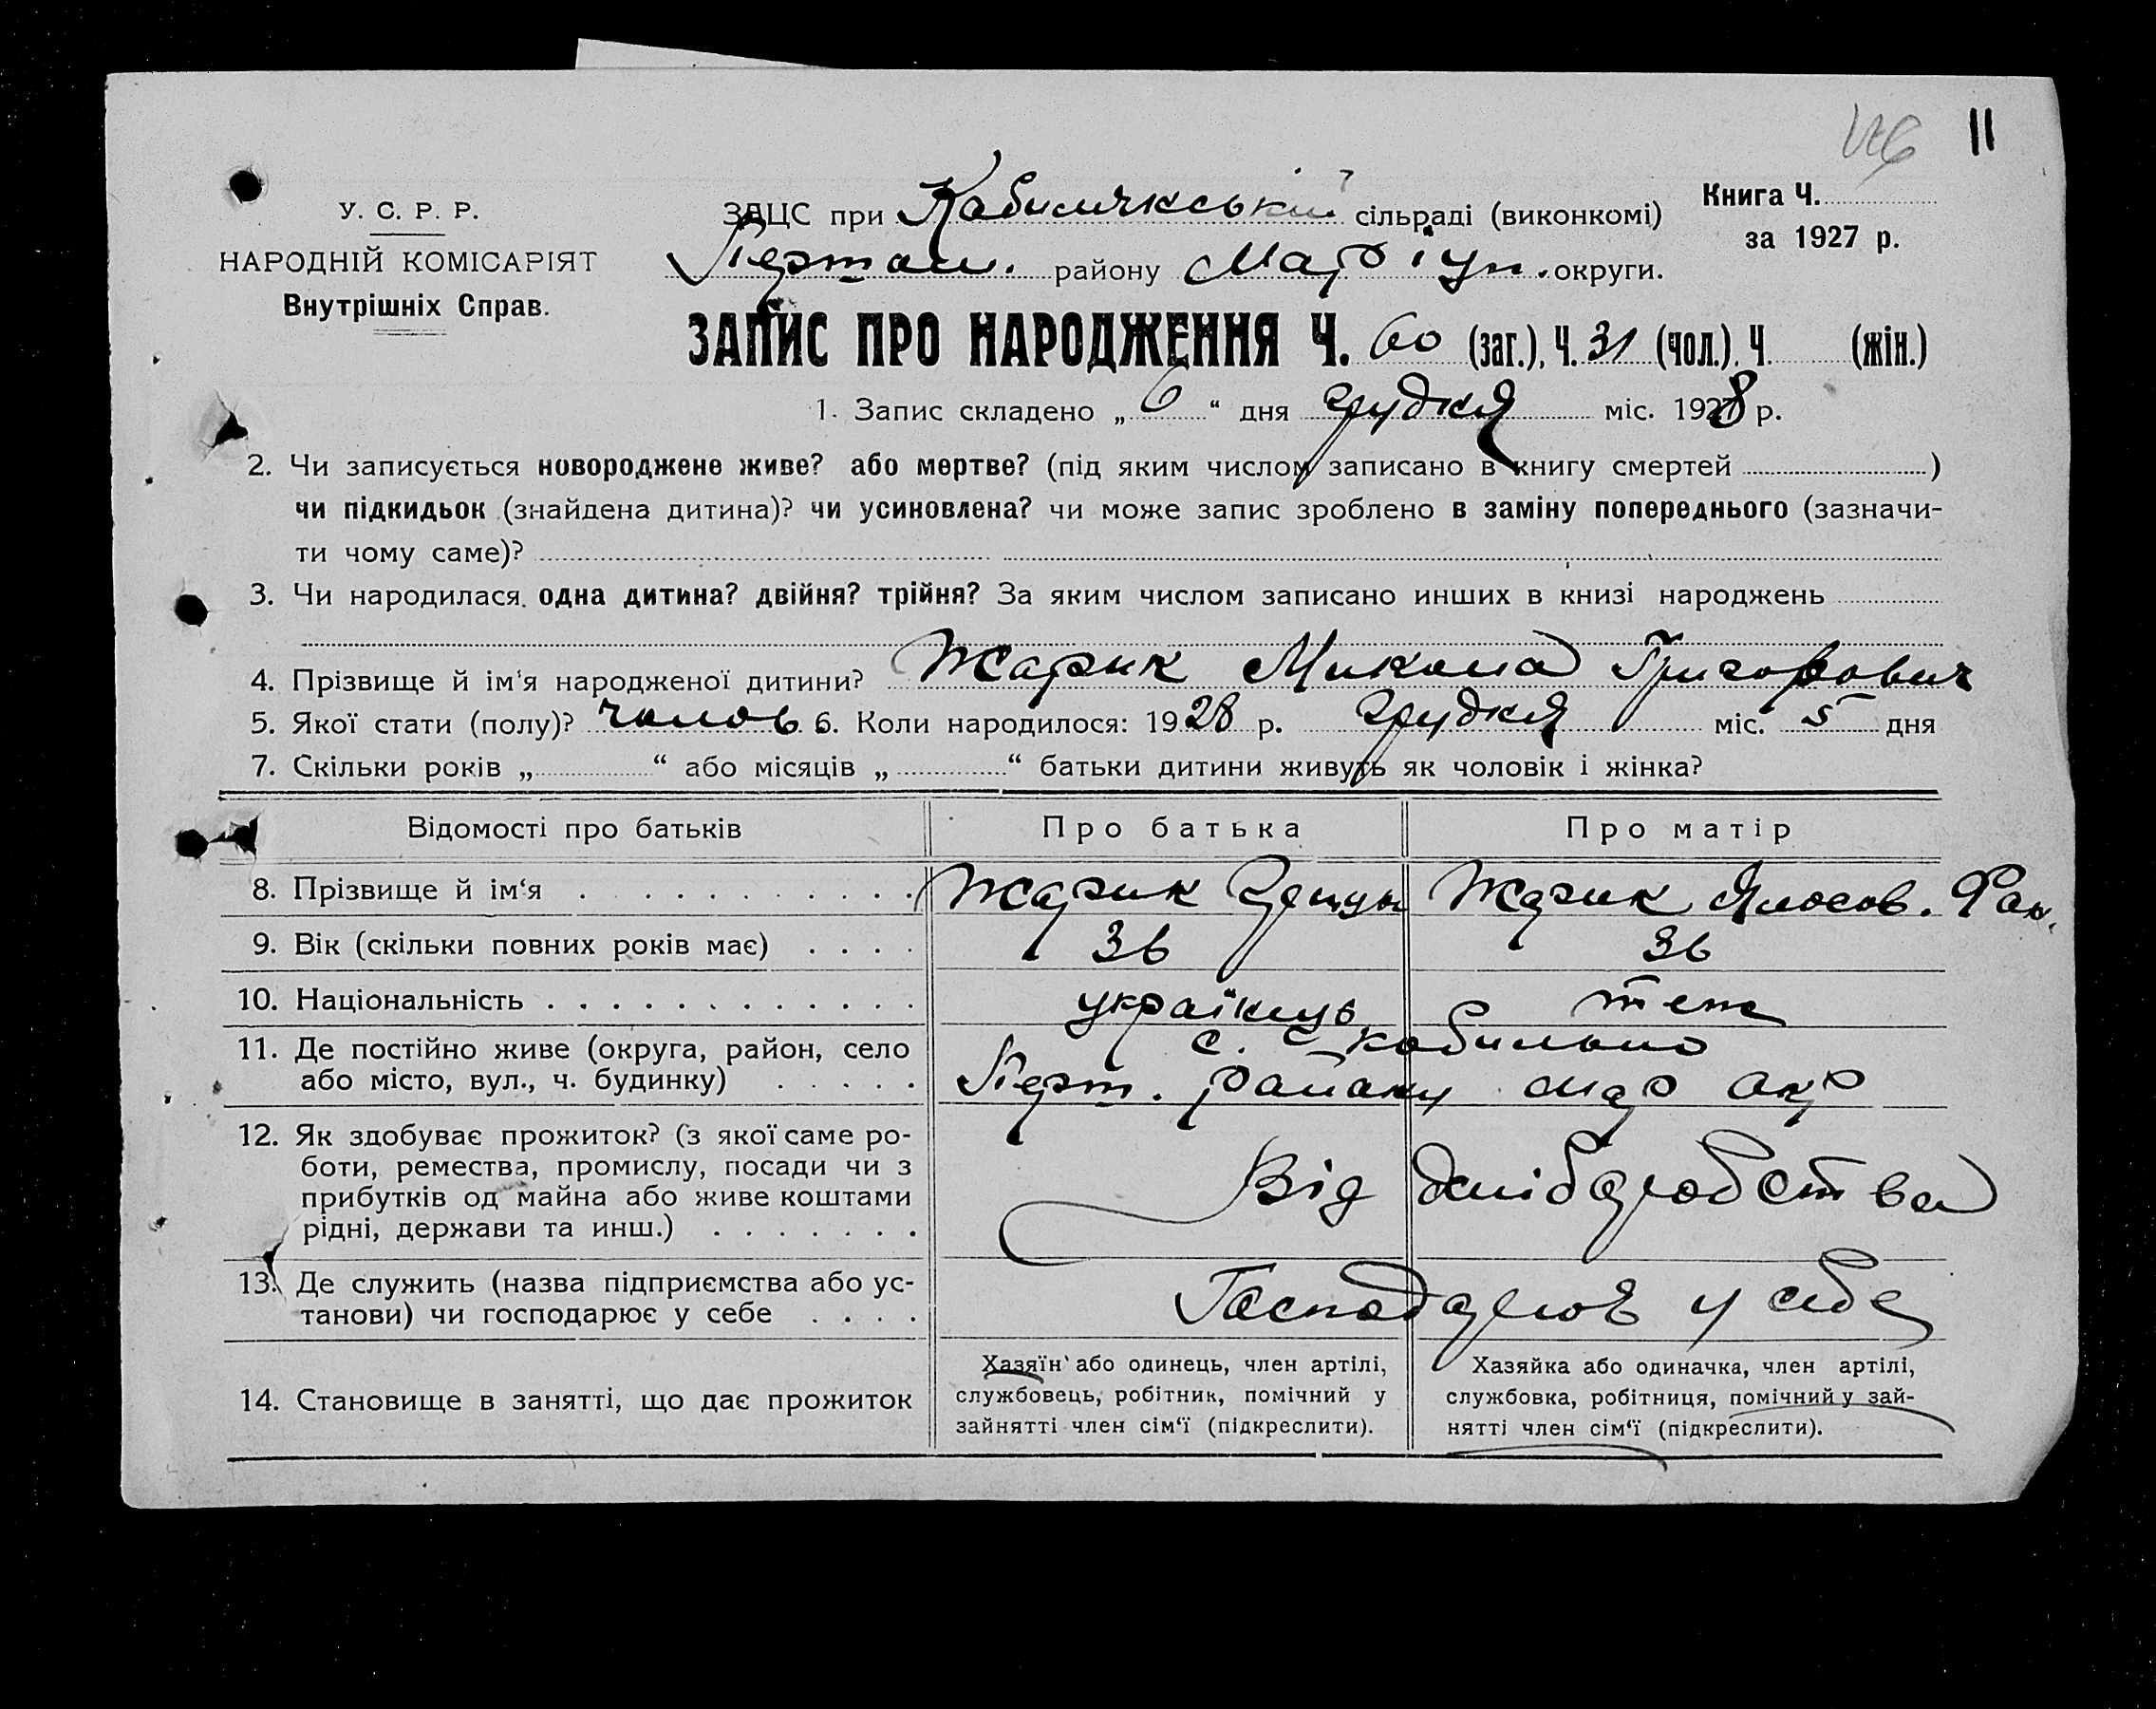 11
У. С. Р. Р.
НАРОДНІЙ КОМІСАРІЯТ
Внутрішніх Справ.
ЗАЦС при сільраді (виконкомі)
району Маріуп. округи.
Книга Ч.
за 1927 р.
ЗАПИС ПРО НАРОДЖЕННЯ Ч. 60 (заг.), Ч. 31 (чол.), Ч. (жін.)
1. Запис складено „ 6 “ дня грудня міс. 1928 р.
2. Чи записується новороджене живе? або мертве? (під яким числом записано в книгу смертей )
чи підкидьок (знайдена дитина)? чи усиновлена? чи може запис зроблено в заміну попереднього (зазначи-
ти чому саме)?
3. Чи народилася одна дитина? двійня? трійня? За яким числом записано инших в книзі народжень
4. Прізвище й ім‘я народженої дитини? Жарик Микола Григорович
5. Якої стати (полу)? чолов 6. Коли народилося: 1928 р. грудня міс. 5 дня
7. Скільки років „ “ або місяців „ “ батьки дитини живуть як чоловік і жінка?
Відомості про батьків Про батька Про матір
8. Прізвище й ім‘я Жарик Жарик
9. Вік (скільки повних років має) 36 36
10. Національність українець теж
11. Де постійно живе (округа, район, село
або місто, вул., ч. будинку) району Мар окр
12. Як здобуває прожиток? (з якої саме ро-
боти, ремества, промислу, посади чи з
прибутків од майна або живе коштами
рідні, держави та инш.) Від хліборобства
13. Де служить (назва підприємства або ус-
танови) чи господарює у себе Господарює у себе
14. Становище в занятті, що дає прожиток
Хазяїн або одинець, член артілі,
службовець, робітник, помічний у
зайнятті член сім‘ї (підкреслити).
Хазяйка або одиначка, член артілі,
службовка, робітниця, помічний у зай-
нятті член сім‘ї (підкреслити).